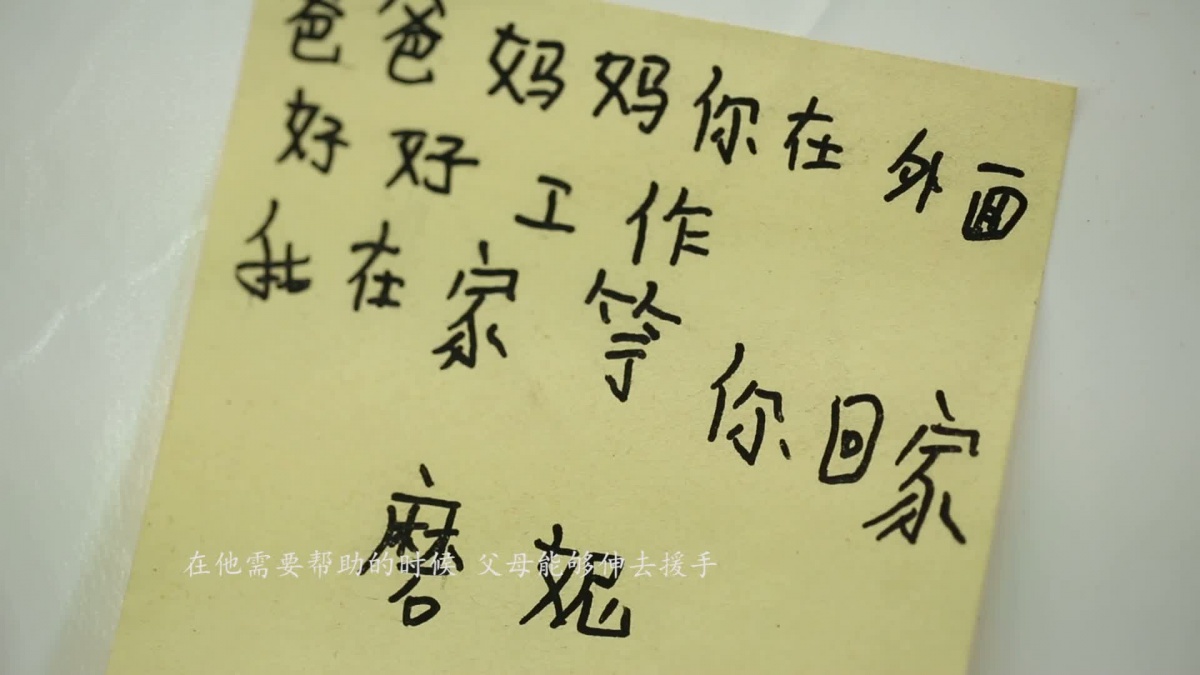 爸爸妈妈你在外面
好好工作
我在家等你回家
磨妮
在他需要帮助的时候 父母能够伸去援手